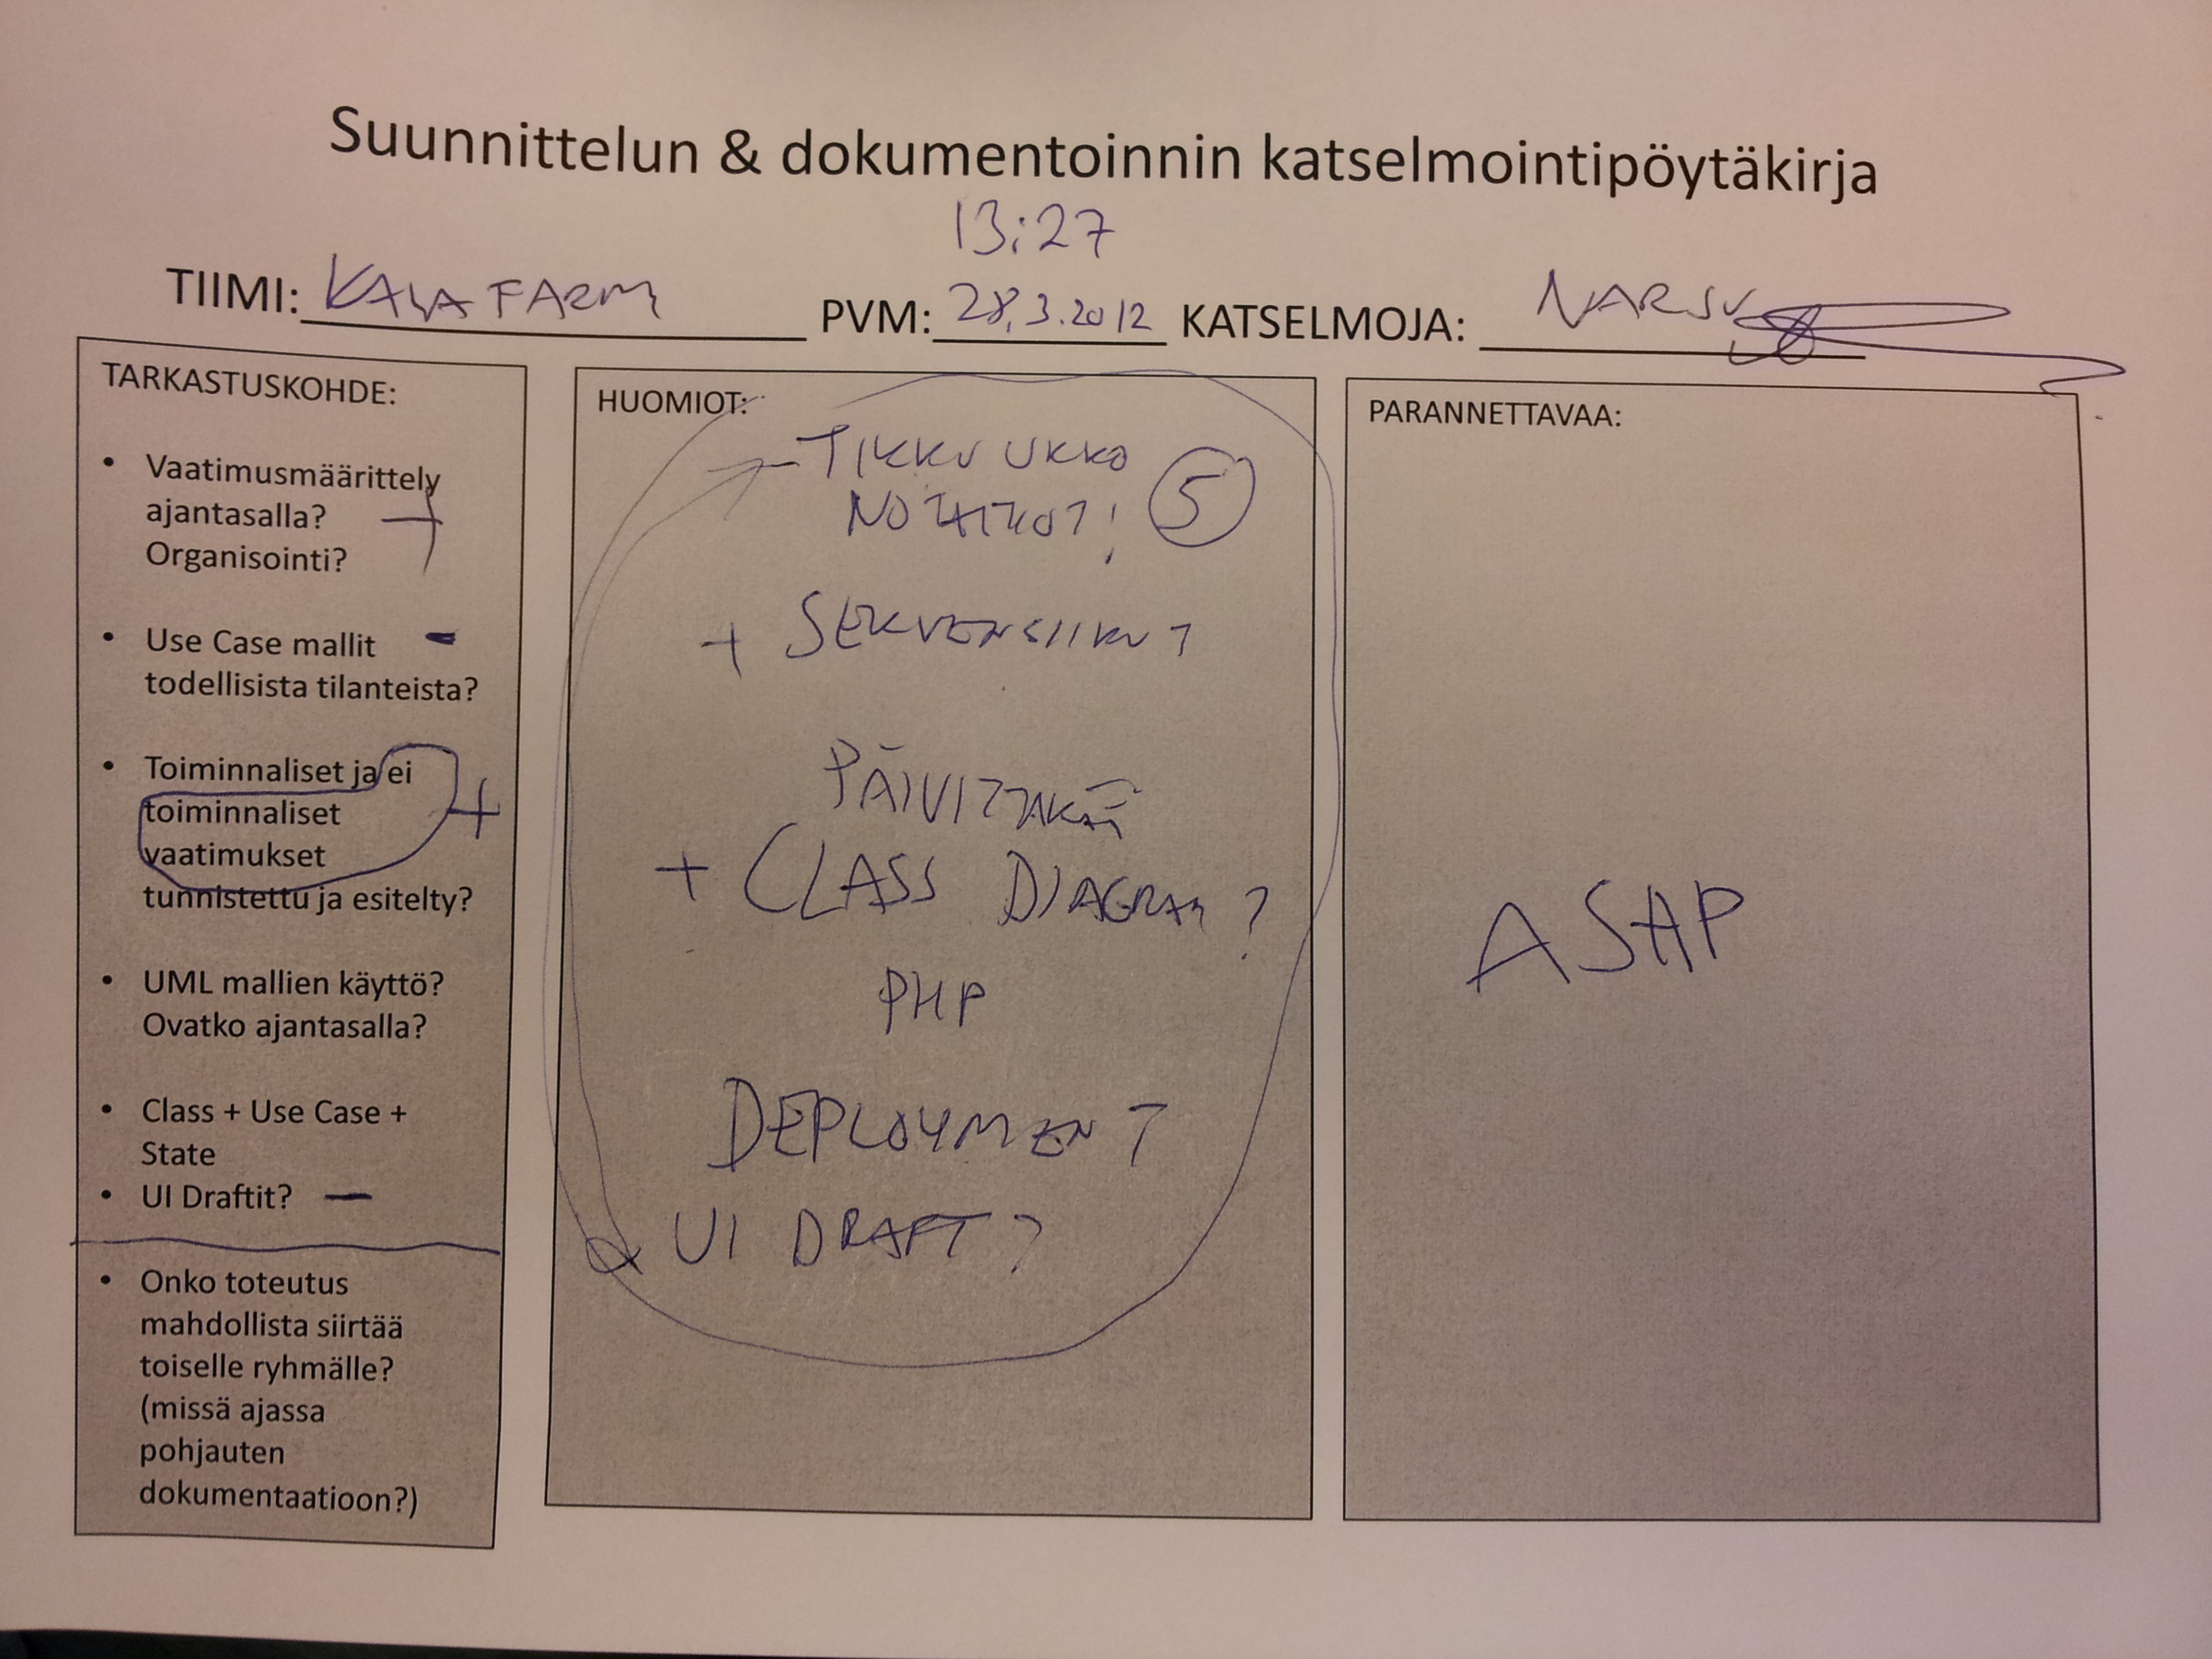 Suunnittelun & dokumentoinnin katselmointipöytäkirja
13:27
TIIMI: KALA FARM PVM: 28.3.2012 KATSELMOJA: NARSU
TARKASTUSKOHDE:
• Vaatimusmäärittely
ajantasalla?
Organisointi? +
• Use Case mallit -
todellisista tilanteista?
• Toiminnaliset ja ei
toiminnaliset
vaatimukset +
tunnistettu ja esitelty?
• UML mallien käyttö?
Ovatko ajantasalla?
• Class + Use Case +
State
• UI Draftit? -
• Onko toteutus
mahdollista siirtää
toiselle ryhmälle?
(missä ajassa
pohjauten
dokumentaatioon?)
HUOMIOT:
TIKKU UKKO
5
+ SEKVENSSIKUT
PÄIVITTÄKÄÄ
+ CLASS DIAGRAM?
PHP
DEPLOYMENT
UI DRAFT?
PARANNETTAVAA:
ASAP